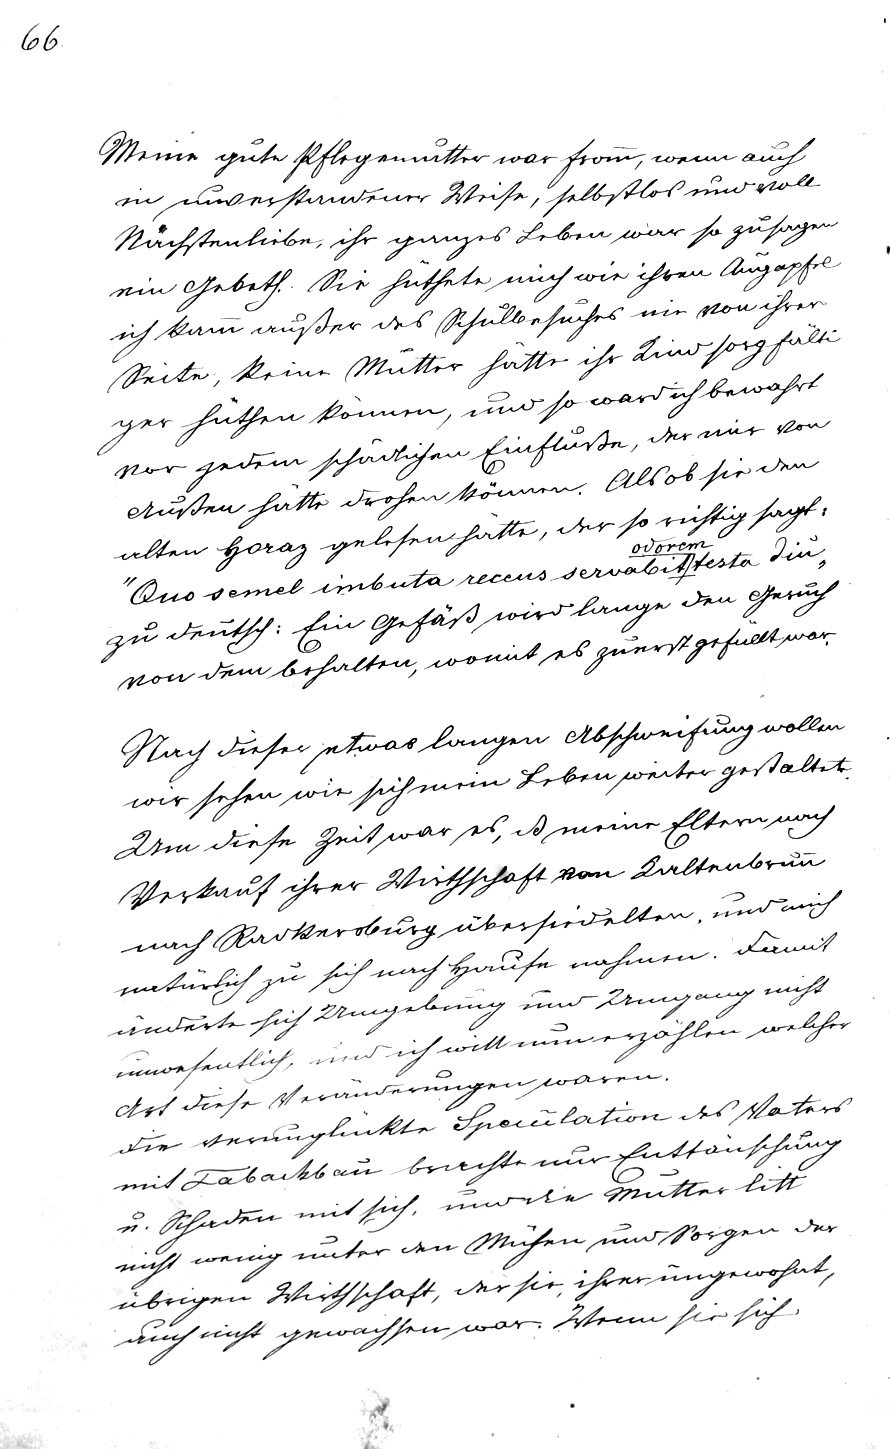 66
Meine gute Pflegemutter war from̄, wenn auch
in unverstandener Weise, selbstlos und voll
Nächstenliebe, ihr ganzes Leben war so zusagen
ein Gebeth. Sie hüthete mich wie ihren Augapfel
ich kam̄ außer des Schulbesuches nie von ihrer
Seite, keine Mutter hätte ihr Kind sorgfälti
ger hüthen können, und so ward ich bewahrt
vor jedem schädlichen Einfluße, der mir von
Außen hätte drohen können. Als ob sie den
alten Horaz gelesen hätte, der so richtig sagt:
"Quo semel imbuta recens servabit odorem testa diu„
zu deutsch: Ein Gefäß wird lange den Geruch
von dem behalten, womit es zuerst gefüllt war.
Nach dieser etwas langen Abschweifung wollen
wir sehen wie sich mein Leben weiter gestaltete.
Um diese Zeit war es, dß meine Eltern nach
Verkauf ihrer Wirthschaft von Kaltenbrun̄
nach Radkersburg übersiedelten, und mich
natürlich zu sich nach Hause nahmen. Damit
änderte sich Umgebung und Umgang nicht
unwesentlich, und ich will nun erzählen welcher
Art diese Veränderungen waren.
Die verunglückte Speculation des Vaters
mit Tabackbau brachte nur Enttäuschung
u. Schaden mit sich, und die Mutter litt
nicht wenig unter den Mühen und Sorgen der
übrigen Wirthschaft, der sie, ihrer ungewohnt,
auch nicht gewachsen war. Wenn sie sich